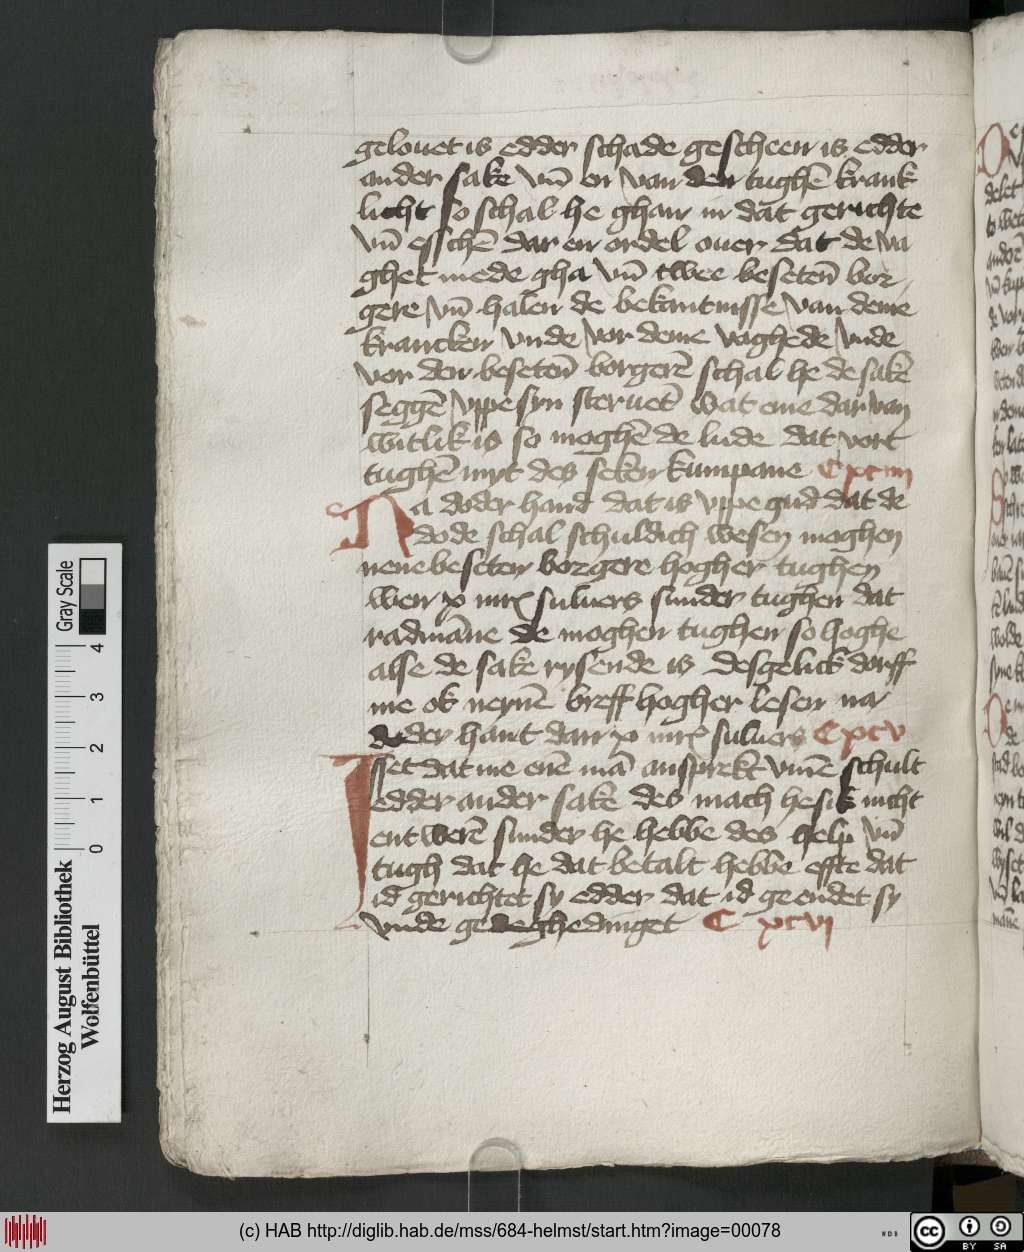 gelouet is edder schade gescheen is edder
ander sake vn̄ en van den tughē krank
licht so schal he ghan in dat gerichte
vn̄ esschē dar en ordel ouer dat de va
ghet mede gha vn̄ twee beseten̄ bor
gere vn̄ halen de bekantnisse van deme
krancken vnde vor deme voghede vnde
vor den beseten̄ borgerē schal he de sake
seggē vppe syn steruet wat eme dar van
witlik is so moghē de lude dat vort
tughē myt des seken kumpane C xciiii
Na doder hand dat is vppe gud dat de
dode schal schuldich wesen moghen
nene beseten borgere hogher tughen
wen x mr̄ suluers sunder tughen dat
radmāne de moghen tughen so hoghe
alse de sake rysende is desgelick dorff
me ok neynē breff hogher lesen na
doder hant dan x mr̄ suluers C xcv
Isset dat me enē mā ansprekt vmē schult
edder ander sake des mach he sik nicht
entwerē sunder he hebbe des help vn̄
tugh dat he dat betalt hebbe effte dat
id gerichtet sy edder dat id geendet sy
vnde gedeghedinget C xcvi
Herzog August Bibliothek
Wolfenbüttel
0 1 2 3 4
Gray Scale
(c) HAB http://diglib.hab.de/mss/684-helmst/start.htm?image=00078
WDB
cc
BY SA